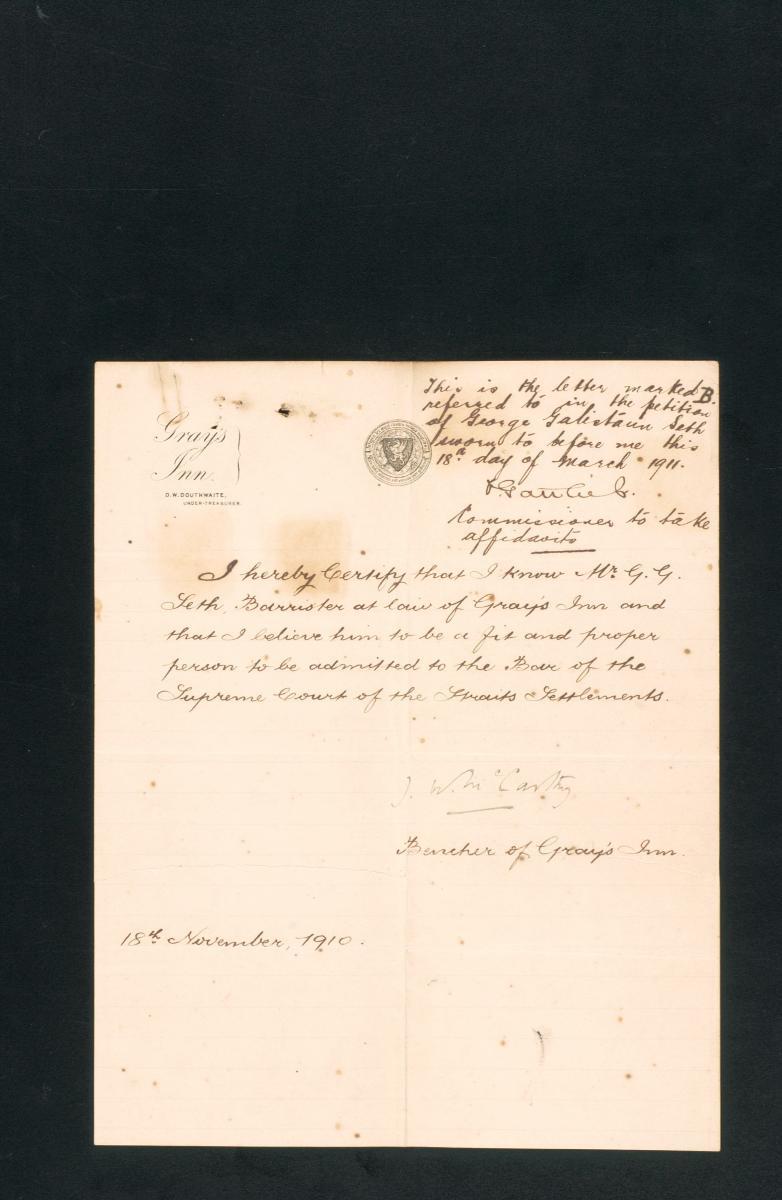 This is the letter marked B.
referred to in the petition
of George Galistaun Seth
sworn to before me this
18th day of March 1911.
Commissioner to take
affidavits
Gray's
Inn.
D.W. DOUTHWAITE,
UNDER-TREASURER.
I hereby Certify that I know Mr. G. G.
Seth, Barrister at law of Gray's Inn and
that I believe him to be a fit and proper
person to be admitted to the Bar of the
Supreme Court of the Straits Settlements.
J. W. McCarthy
Bencher of Gray's Inn.
18th November, 1910.